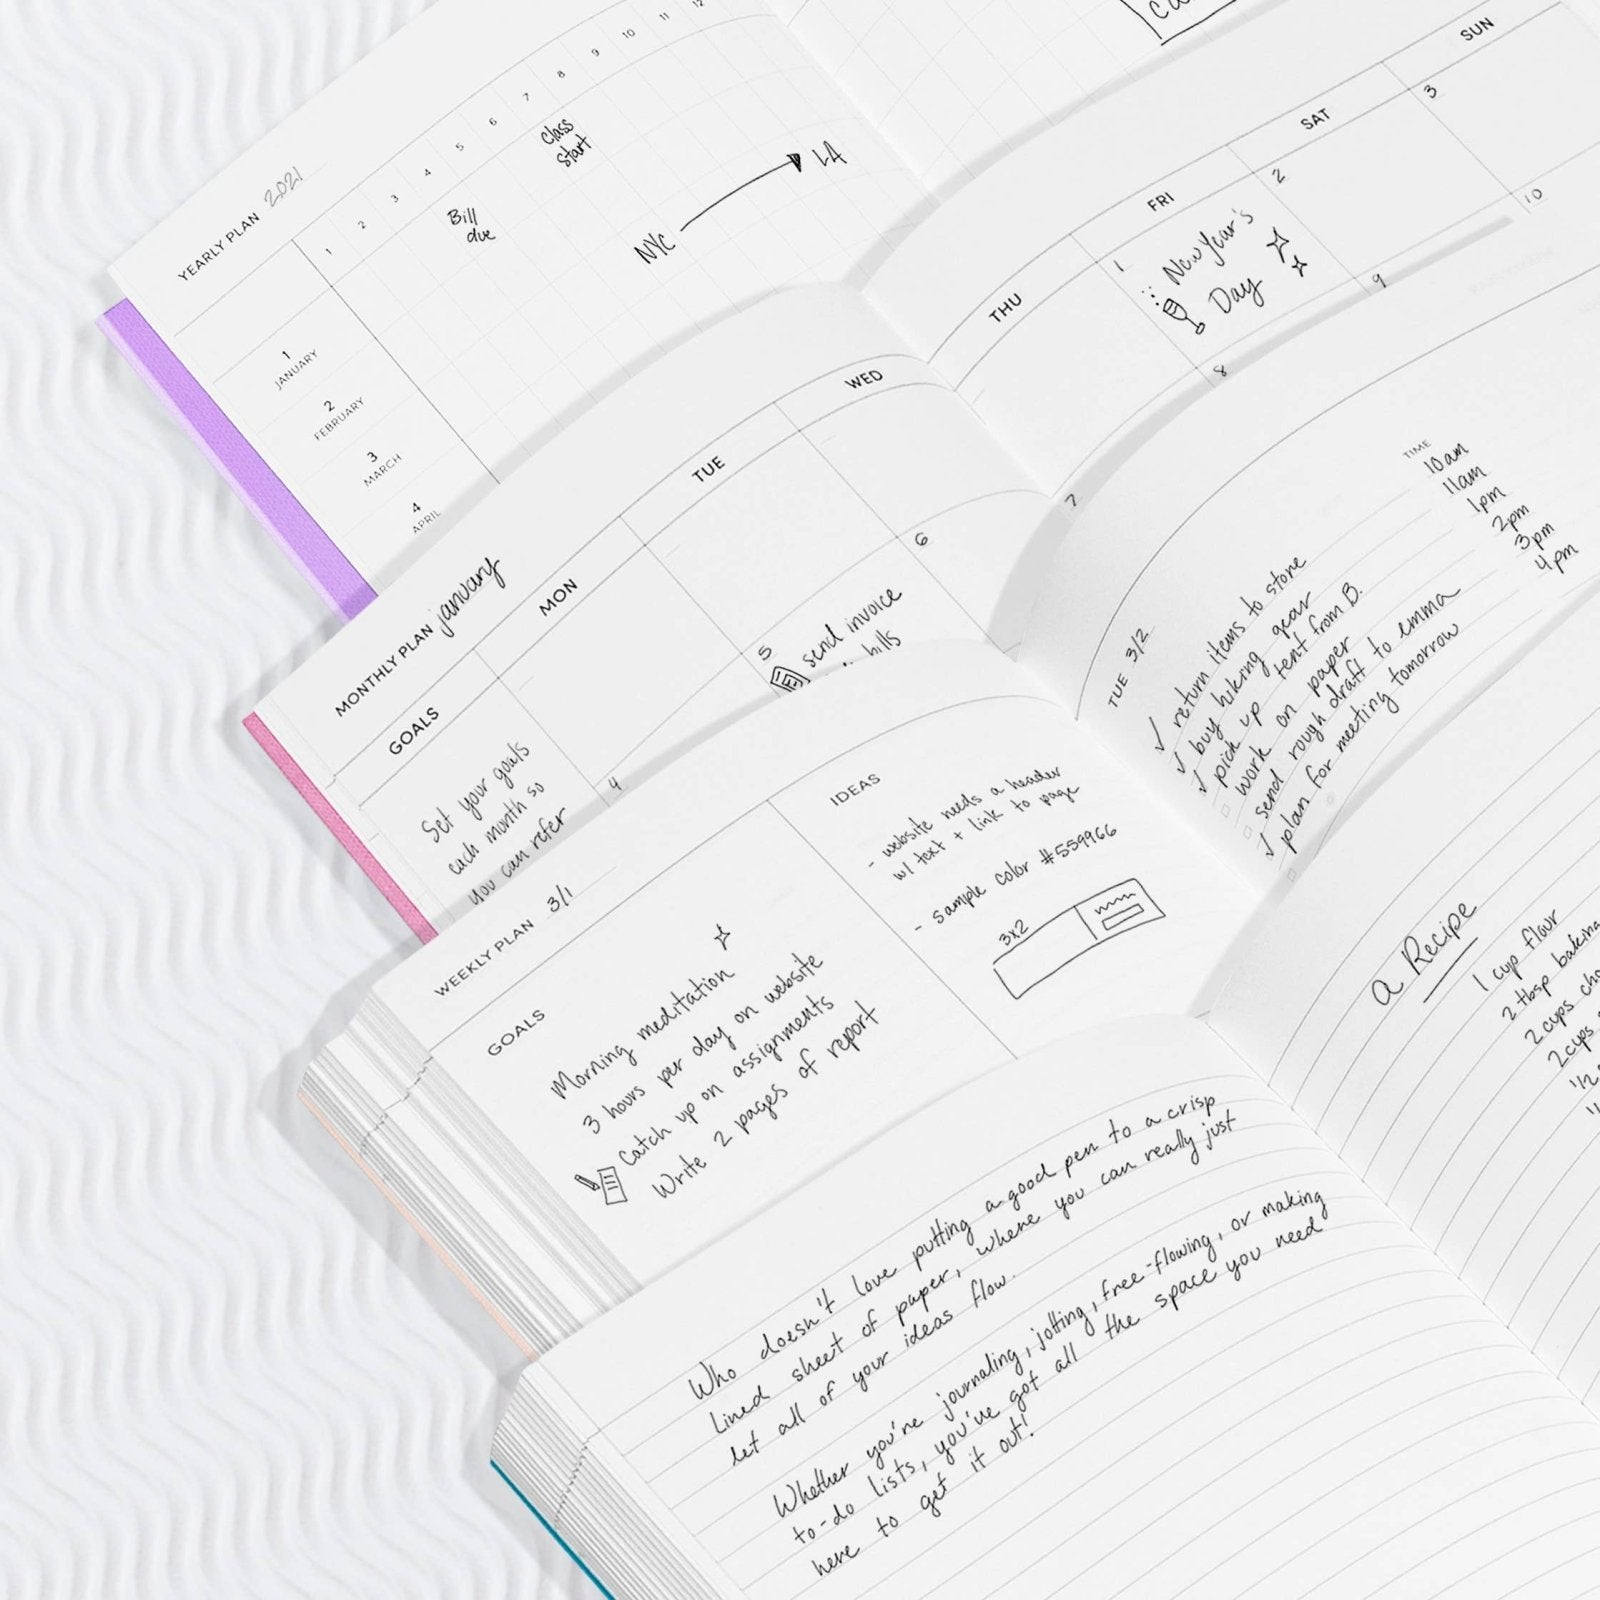 YEARLY PLAN 2021
1 2 3 4 5 6 7 8 9 10 11 12
Class
start
Bill
due
NYC
LA
1
JANUARY
2
FEBRUARY
3
MARCH
4
APRIL
MONTHLY PLAN january
GOALS
MON
TUE
WED
THU
FRI
SAT
SUN
1
2
3
New Year's
Day
4
5
6
7
8
9
10
send invoice
bills
Set your goals
each month so
you can refer
WEEKLY PLAN 3/1
GOALS
Morning meditation
3 hours per day on website
Catch up on assignments
Write 2 pages of report
IDEAS
- website needs a header
w/ text + link to page
- sample color #559966
3x2
TUE 3/2
TIME
return items to store 10am
buy hiking gear 11am
pick up tent from B. 1pm
work on paper 2pm
send rough draft to emma 3pm
plan for meeting tomorrow 4pm
Who doesn't love putting a good pen to a crisp
lined sheet of paper, where you can really just
let all of your ideas flow.
Whether you're journaling, jotting, free-flowing, or making
to-do lists, you've got all the space you need
here to get it out!
a Recipe
1 cup flour
2 tbsp baking
2 cups
2 cups